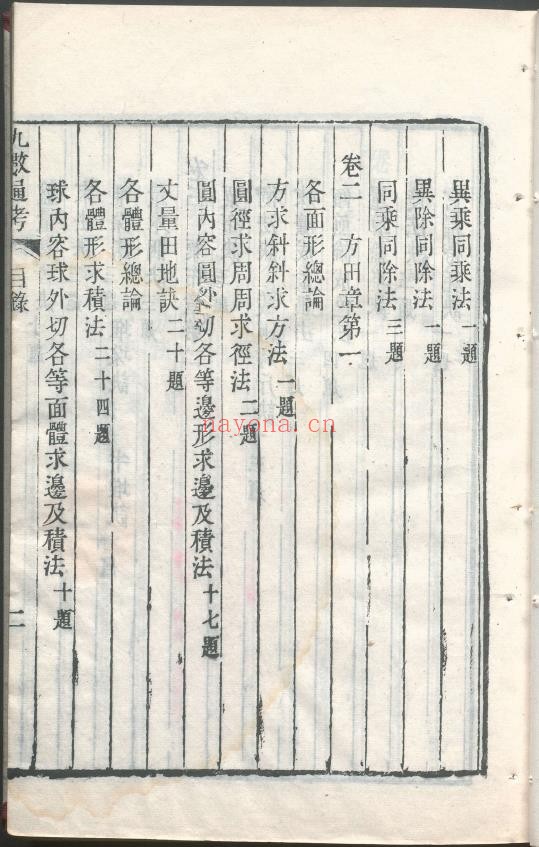 異乘同乘法 一題
異除同除法 一題
同乘同除法 三題
卷二 方田章第一
各面形總論
方求斜斜求方法 一題
圓徑求周周求徑法 二題
圓內容圓外切各等邊形求邊及積法 十七題
丈量田地訣 二十題
各體形總論
各體形求積法 二十四題
球內容球外切各等面體求邊及積法 十題
九數通考 目錄 二
nayona.cn